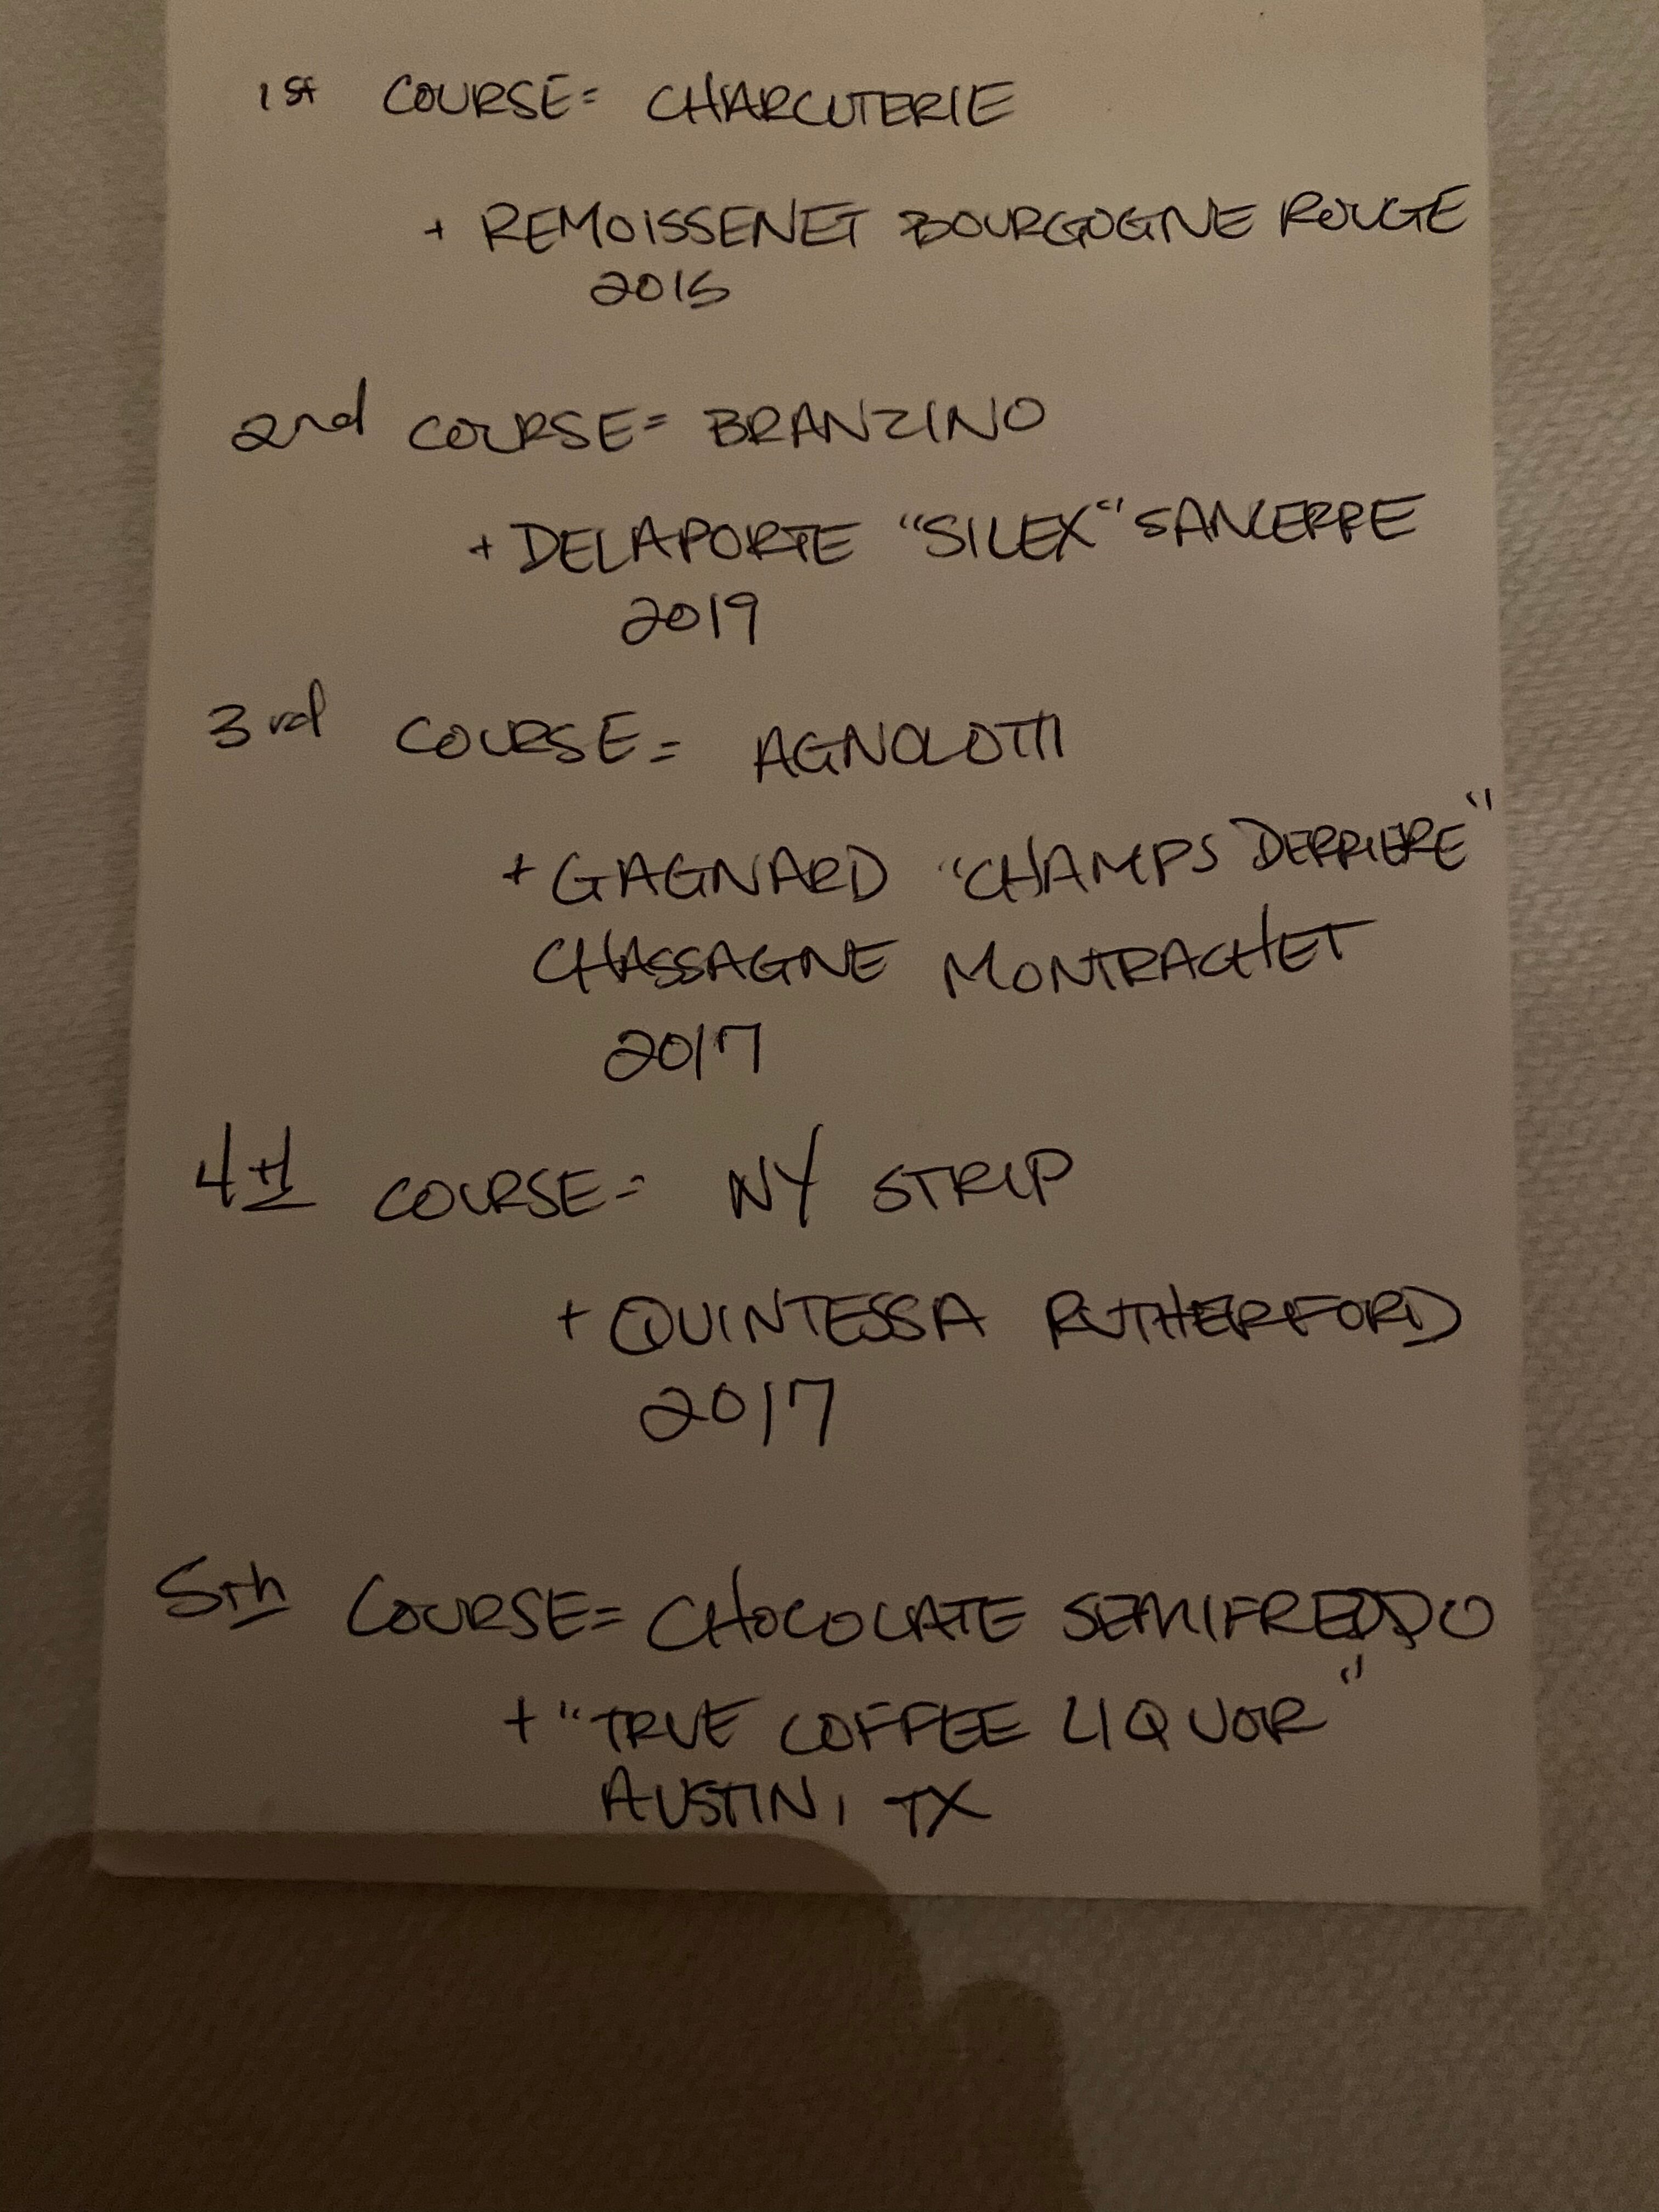 1st COURSE= CHARCUTERIE
+ REMOISSENET BOURGOGNE ROUGE
2015
2nd COURSE= BRANZINO
+ DELAPORTE "SILEX" SANCERRE
2019
3rd COURSE= AGNOLOTTI
+ GAGNARD "CHAMPS DERRIERE"
CHASSAGNE MONTRACHET
2017
4th COURSE= NY STRIP
+ QUINTESSA RUTHERFORD
2017
5th COURSE= CHOCOLATE SEMIFREDDO
+ "TRUE COFFEE LIQUOR"
AUSTIN, TX